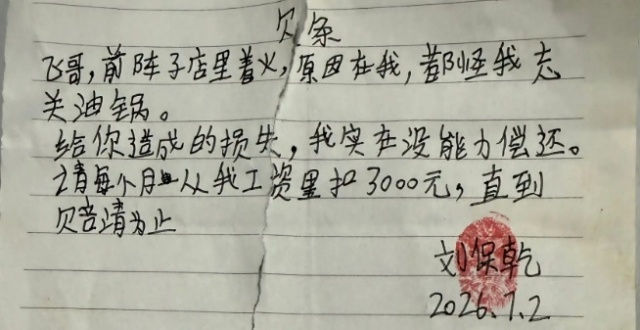 欠条
飞哥，前阵子店里着火，原因在我，都怪我忘
关油锅。
给你造成的损失，我实在没能力偿还。
请每个月从我工资里扣3000元，直到
赔清为止
刘保乾
2026.7.2